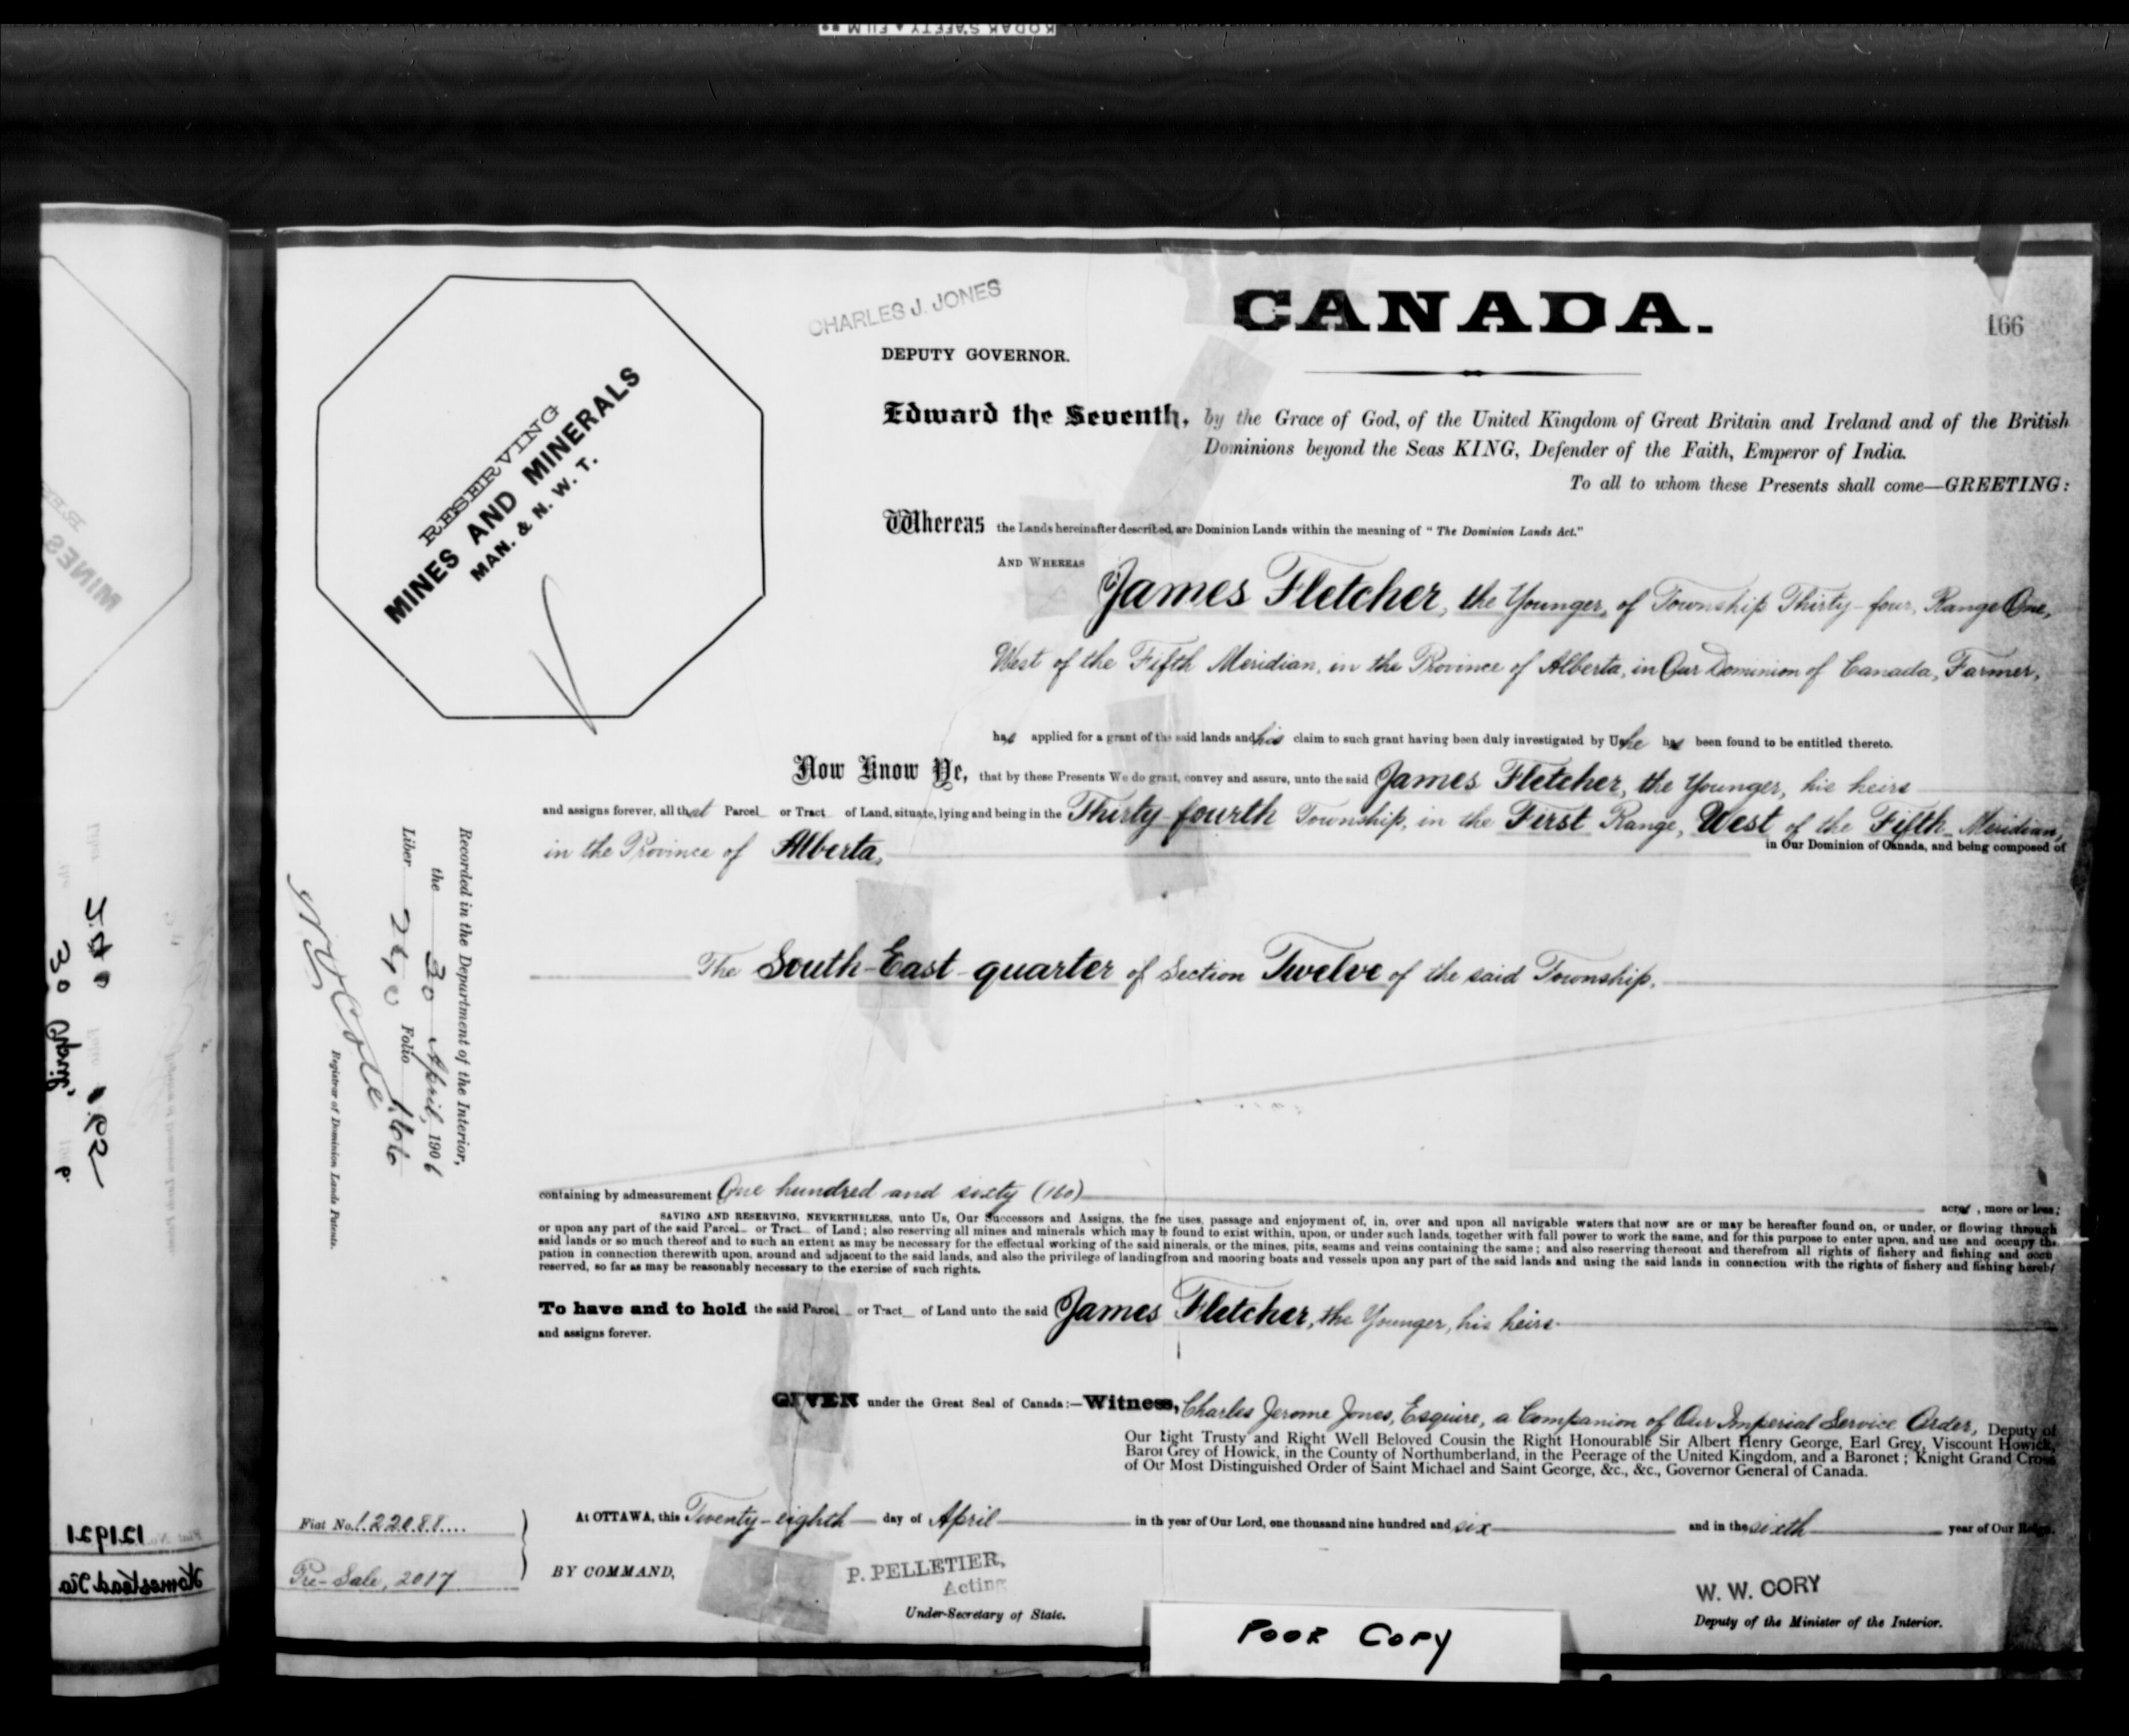 KODAK SAFETY FILM
CHARLES J. JONES
DEPUTY GOVERNOR.
CANADA.
166
RESERVING
MINES AND MINERALS
MAN. & N. W. T.
Edward the Seventh, by the Grace of God, of the United Kingdom of Great Britain and Ireland and of the British
Dominions beyond the Seas KING, Defender of the Faith, Emperor of India.
To all to whom these Presents shall come—GREETING:
Whereas the Lands hereinafter described, are Dominion Lands within the meaning of "The Dominion Lands Act."
AND WHEREAS
James Fletcher, the Younger, of Township Thirty-four, Range One,
West of the Fifth Meridian, in the Province of Alberta, in Our Dominion of Canada, Farmer,
has applied for a grant of the said lands and his claim to such grant having been duly investigated by Us he has been found to be entitled thereto.
Now Know Ye, that by these Presents We do grant, convey and assure, unto the said James Fletcher, the Younger, his heirs
and assigns forever, all that Parcel or Tract of Land, situate, lying and being in the Thirty-fourth Township, in the First Range, West of the Fifth Meridian,
in the Province of Alberta, in Our Dominion of Canada, and being composed of
The South-East-quarter of Section Twelve of the said Township.
containing by admeasurement One hundred and sixty (160) acres, more or less;
SAVING AND RESERVING, NEVERTHELESS, unto Us, Our Successors and Assigns, the free uses, passage and enjoyment of, in, over and upon all navigable waters that now are or may be hereafter found on, or under, or flowing through
or upon any part of the said Parcel or Tract of Land; also reserving all mines and minerals which may be found to exist within, upon, or under such lands, together with full power to work the same, and for this purpose to enter upon, and use and occupy the
said lands or so much thereof and to such an extent as may be necessary for the effectual working of the said minerals, or the mines, pits, seams and veins containing the same; and also reserving thereout and therefrom all rights of fishery and fishing and occu
pation in connection therewith upon, around and adjacent to the said lands, and also the privilege of landing from and mooring boats and vessels upon any part of the said lands and using the said lands in connection with the rights of fishery and fishing hereby
reserved, so far as may be reasonably necessary to the exercise of such rights.
To have and to hold the said Parcel or Tract of Land unto the said James Fletcher, the Younger, his heirs
and assigns forever.
GIVEN under the Great Seal of Canada:—Witness, Charles Jerome Jones, Esquire, a Companion of Our Imperial Service Order, Deputy of
Our Right Trusty and Right Well Beloved Cousin the Right Honourable Sir Albert Henry George, Earl Grey, Viscount Howick,
Baron Grey of Howick, in the County of Northumberland, in the Peerage of the United Kingdom, and a Baronet; Knight Grand Cross
of Our Most Distinguished Order of Saint Michael and Saint George, &c., &c., Governor General of Canada.
At OTTAWA, this Twenty-eighth day of April in the year of Our Lord, one thousand nine hundred and six and in the sixth year of Our Reign.
BY COMMAND,
P. PELLETIER,
Acting
Under-Secretary of State.
W. W. CORY
Deputy of the Minister of the Interior.
Fiat No. 122088
Pre-Sale, 2017
Recorded in the Department of the Interior,
the 30 April, 1906
Liber 240 Folio 166
N O Cote
Registrar of Dominion Lands Patents.
Poor Copy
MINES
30 April
121921
Homestead